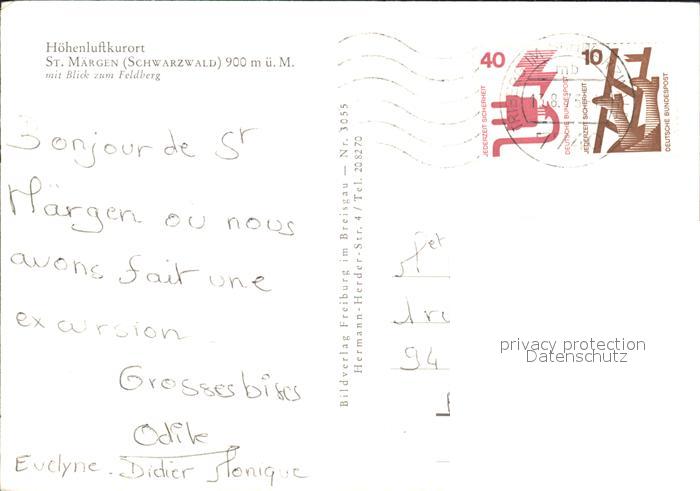 Höhenluftkurort
ST. MÄRGEN (SCHWARZWALD) 900 m ü. M.
mit Blick zum Feldberg
Bonjour de St
Märgen où nous
avons fait une
excursion
Grosses bises
Odile
Evelyne. Didier Monique
Bildverlag Freiburg im Breisgau — Nr. 3055
Hermann-Herder-Str. 4 / Tel. 208270
40
JEDERZEIT SICHERHEIT
DEUTSCHE BUNDESPOST
10
JEDERZEIT SICHERHEIT
DEUTSCHE BUNDESPOST
94
privacy protection
Datenschutz